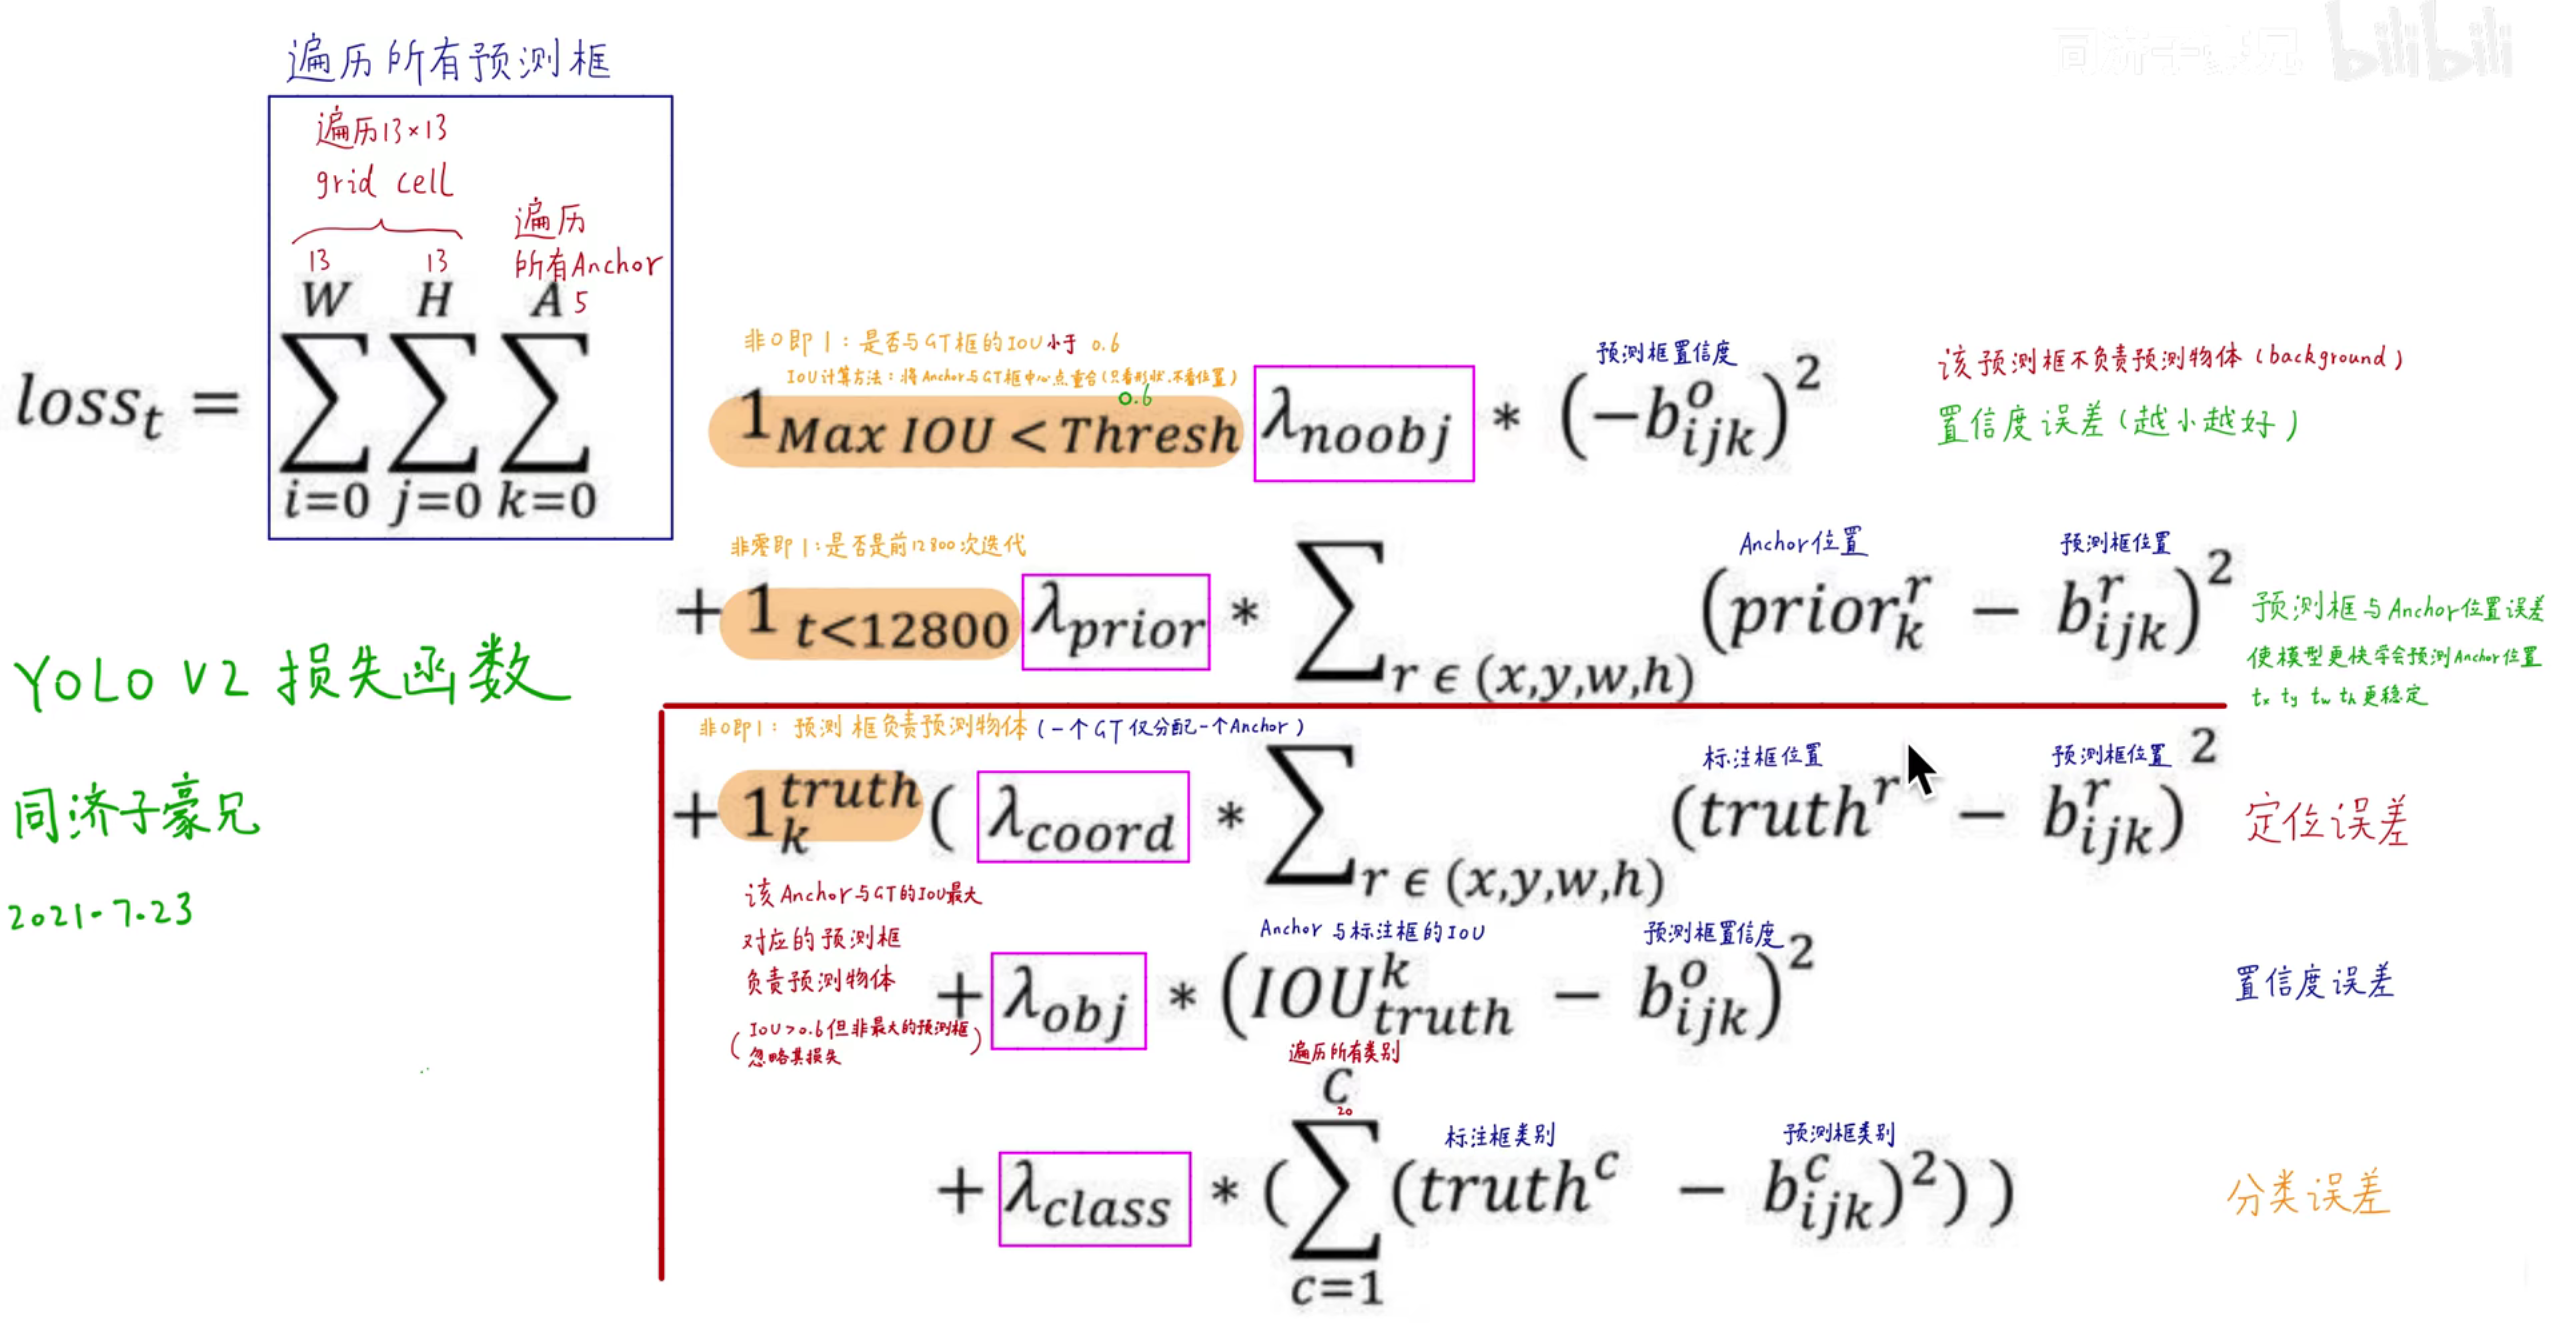 同济子豪兄 bilibili
遍历所有预测框
遍历13×13
grid cell
遍历
所有Anchor
13 13 5
loss_t = \sum_{i=0}^{W} \sum_{j=0}^{H} \sum_{k=0}^{A}
非0即1：是否与GT框的IOU小于 0.6
IOU计算方法：将Anchor与GT框中心点重合（只看形状，不看位置）
0.6
预测框置信度
1_{Max IOU < Thresh} λ_{noobj} * (−b_{ijk}^{o})^2
该预测框不负责预测物体（background）
置信度误差（越小越好）
非零即1：是否是前12800次迭代
Anchor位置 预测框位置
+ 1_{t<12800} λ_{prior} * \sum_{r ϵ (x,y,w,h)} (prior_k^r − b_{ijk}^r)^2
预测框与Anchor位置误差
使模型更快学会预测Anchor位置
tx ty tw th更稳定
YOLO V2 损失函数
同济子豪兄
2021.7.23
非0即1：预测框负责预测物体（一个GT仅分配一个Anchor）
标注框位置 预测框位置
+ 1_k^{truth} ( λ_{coord} * \sum_{r ϵ (x,y,w,h)} (truth^r − b_{ijk}^r)^2
定位误差
该Anchor与GT的IOU最大
对应的预测框
负责预测物体
（IOU>0.6但非最大的预测框
忽略其损失）
Anchor与标注框的IOU 预测框置信度
+ λ_{obj} * (IOU_{truth}^k − b_{ijk}^o)^2
置信度误差
遍历所有类别
20
标注框类别 预测框类别
+ λ_{class} * ( \sum_{c=1}^{C} (truth^c − b_{ijk}^c)^2 ) )
分类误差